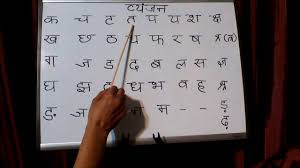 व्यंजन
क च ट त प य श क्ष
ख छ ठ थ फ र ष त्र
ग ज ड द ब ल स ज्ञ
घ झ ध भ व ह श्र
ङ म - - ड़
ढ़